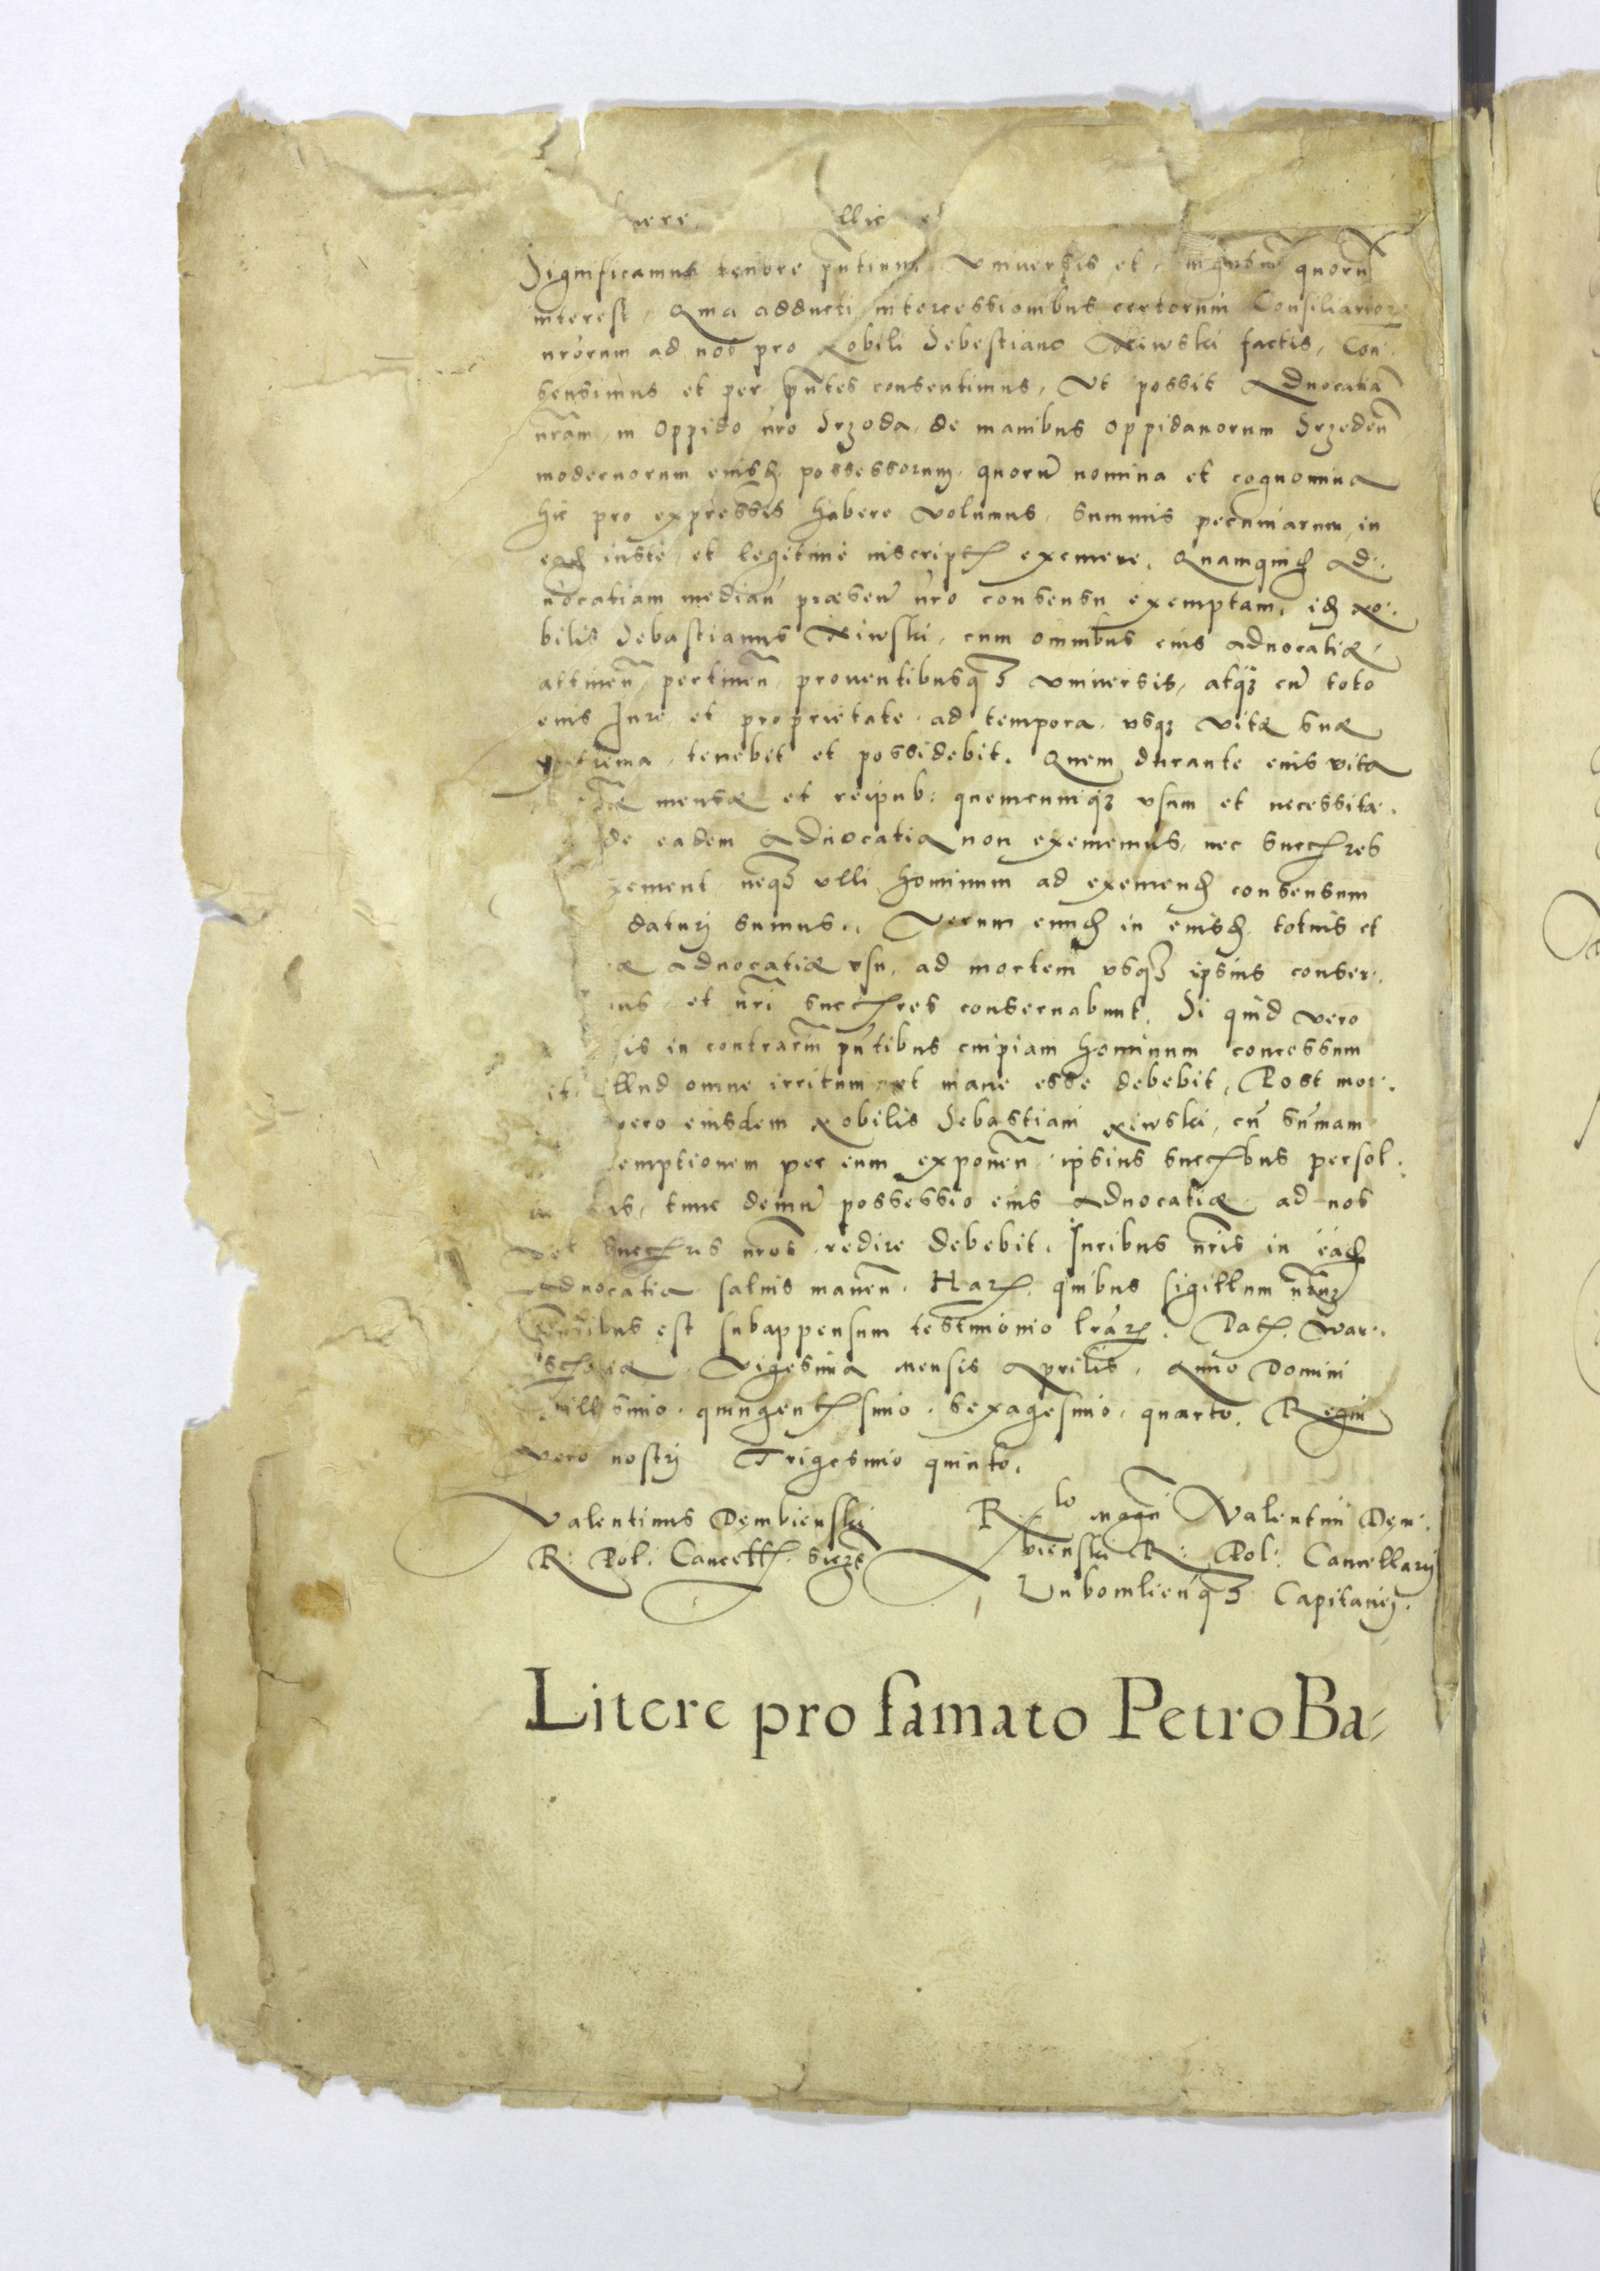 nere llic e
Significamus tenore pñtium Vniuersis et quorũ
interest, Quia adducti intercessionibus certorum Consiliarior
nrorum ad nos pro Nobili Sebestiano Niwski factis, Con:
sensimus et per pñtes consentimus, Vt possit Aduocatiã
nrãm in Oppido nro Srzoda, de manibus oppidanorum Srzedeñ
modernorum eiusd. possessorum, quorũ nomina et cognomina
hic pro expressis habere volumus, summis pecuniarum in
ead. iuste et legitime inscript. exemere. Quamquid. Ad:
uocatiam mediañ præsen. nro consensu exemptam, id. No:
bilis Sebastianus Niwski, cum omnibus eius aduocatiæ
attineñ, pertineñ, prouentibusq3 vniuersis, atq3 cũ toto
eius Iure et proprietate, ad tempora vsq3 vitæ suæ
extrema, tenebit et possidebit. Quem durante eius vita
mensæ et reipub: quemcunq3 vsum et necessita:
de eadem Aduocatia non exememus, nec succres
ement, neq3 vlli hominum ad exemend. consensum
daturi sumus. Verum eund. in eiusd. totius et
æ aduocatiæ vsu, ad mortem vsq3 ipsius conser:
us, et nri succres conseruabunt. Si quid vero
is in contrarm pñtibus cuipiam hominum concessum
it, illud omne irritum et inane esse debebit. Post mor:
vero eiusdem Nobilis Sebastiani Niwski, cũ sũmam
emptionem per eum exponeñ ipsius succbus persol:
us, tunc demũ possessio eius aduocatiæ ad nos
vel succres nros redire debebit. Iuribus nris in ead.
aduocatia saluis maneñ. Har. quibus sigillum nrum
est subappensum testimonio lrar. Dat. War:
Vigesima mensis Aprilis, Anno Domini
millesimo quingentesimo sexagesimo quarto. Regni
vero nostri Trigesimo quinto.
Valentinus Dembienski
R: Pol: Cancell.
R lo magci Valentini Dem:
bienski R: Pol: Cancellarij
Capitanei.
Litere pro famato Petro Ba